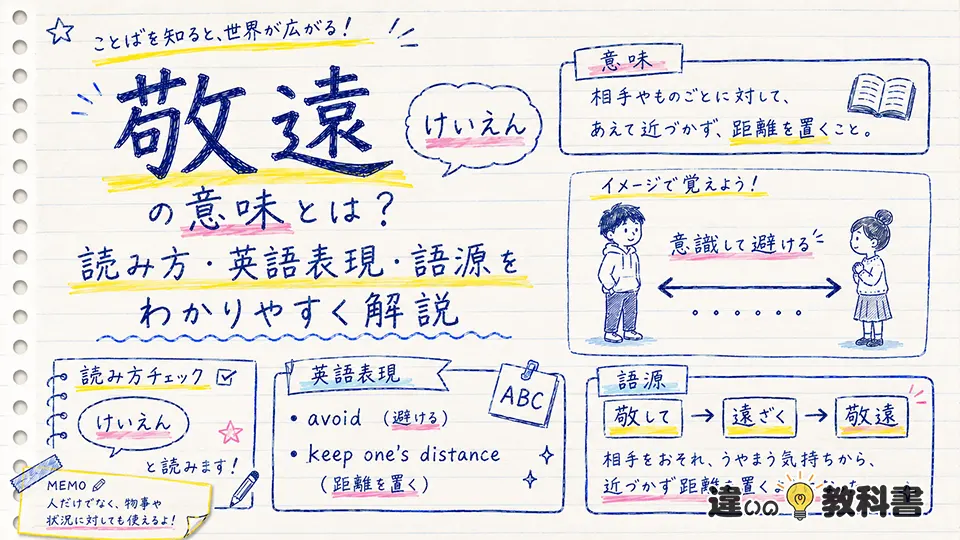 ことばを知ると、世界が広がる!
敬遠
けいえん
の意味とは?
読み方・英語表現・語源を
わかりやすく解説
意味
相手やものごとに対して、
あえて近づかず、距離を置くこと。
イメージで覚えよう!
意識して避ける
読み方チェック
けいえん
と読みます!
MEMO
人だけでなく、物事や
状況に対しても使えるよ!
英語表現
ABC
• avoid (避ける)
• keep one's distance
(距離を置く)
語源
敬して → 遠ざく → 敬遠
相手をおそれ、うやまう気持ちから、
近づかず距離を置く
違いの教科書